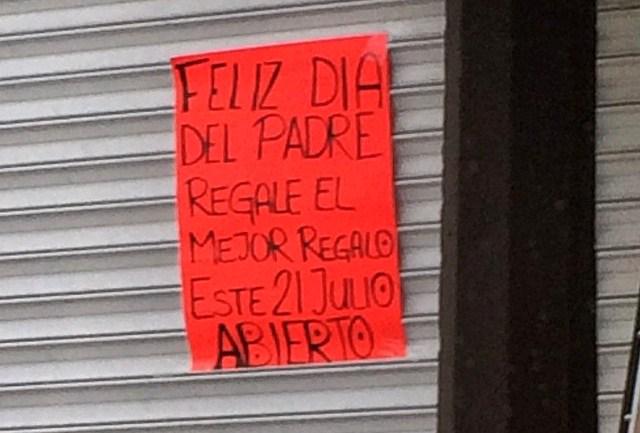 FELIZ DIA
DEL PADRE
REGALE EL
MEJOR REGALO
ESTE 21 JULIO
ABIERTO